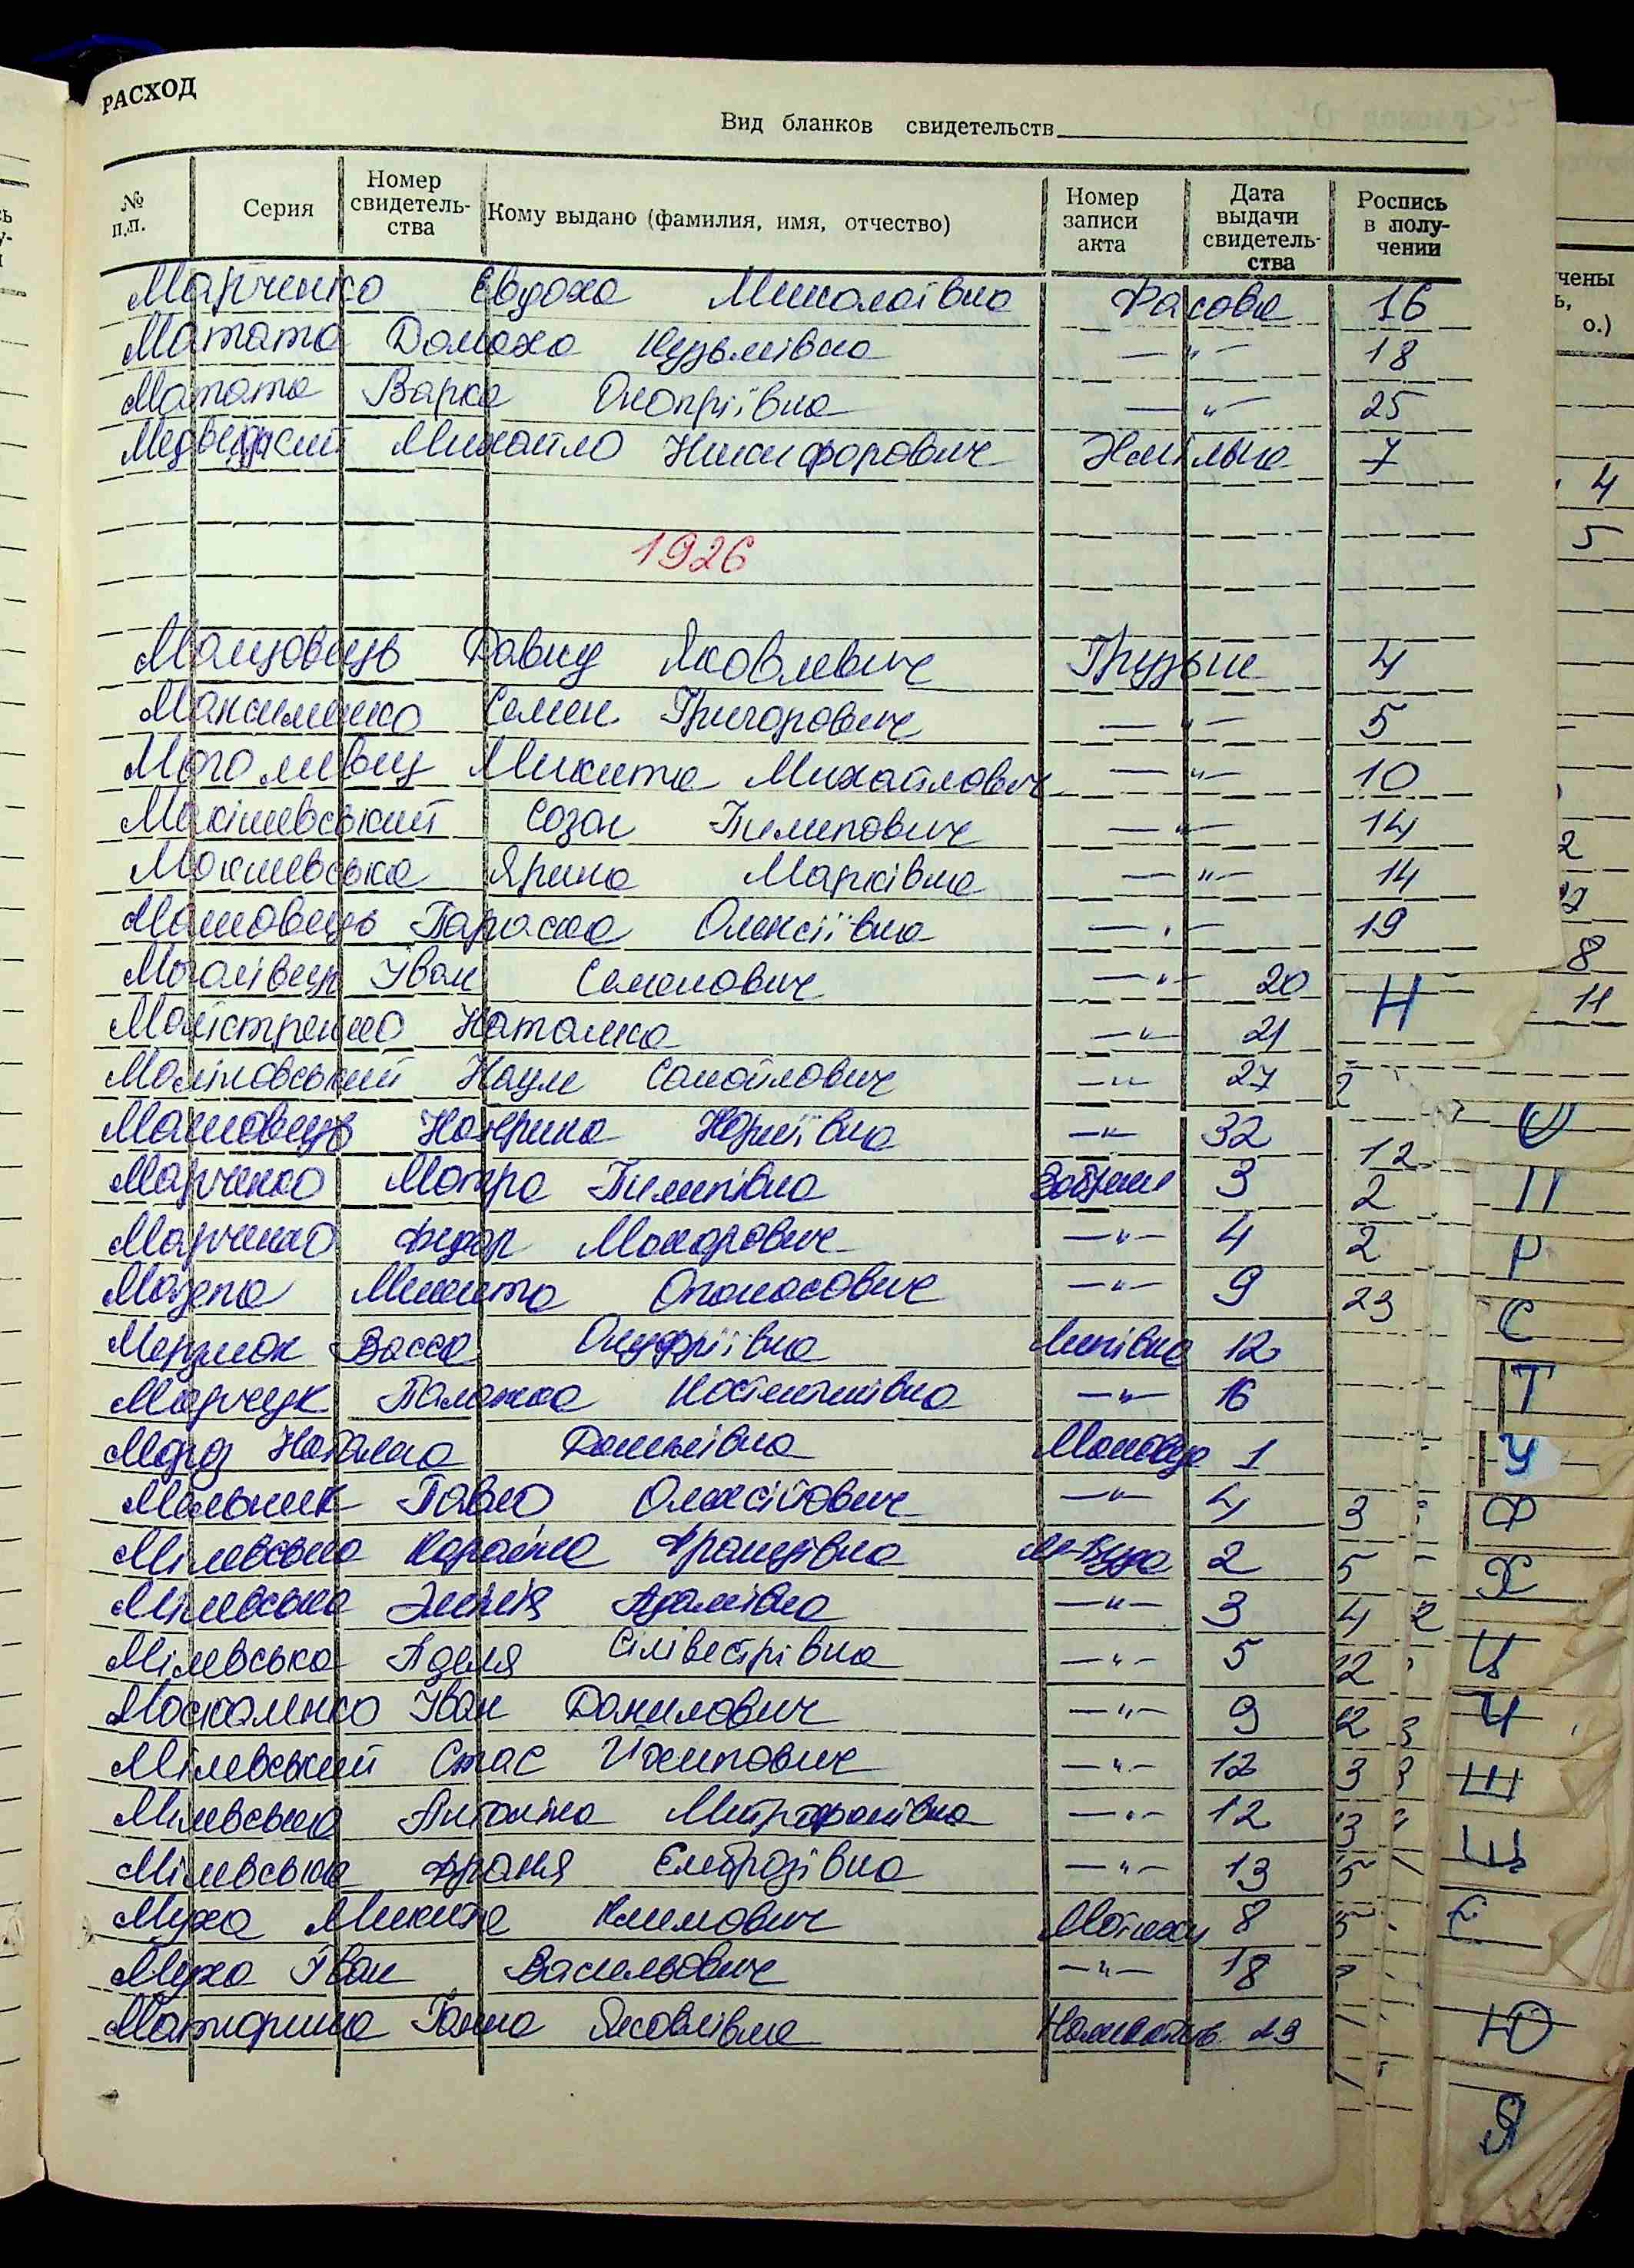 РАСХОД
Вид бланков свидетельств
№ п.п. Серия Номер свидетель-ства Кому выдано (фамилия, имя, отчество) Номер записи акта Дата выдачи свидетель-ства Роспись в полу-чении
Марченко Євдоха Миколаївна Фасова 16
Матата Домаха Кузьмівна —"— 18
Матата Варка Онопріївна —"— 25
Медведский Михайло Никифорович Хмільна 7
1926
Машовець Давид Яковлевич Грузьке 4
Максименко Семен Григорович —"— 5
Моголивец Микита Михайлович —"— 10
Макішевський Созон Пилипович —"— 14
Макишевська Ярина Марківна —"— 14
Машовець Параска Олексіївна —"— 19
Моголівець Іван Семенович —"— 20
Майстренко Наталка —"— 21
Маліновський Наум Самойлович —"— 27
Машовець Катерина Юріївна —"— 32
Марченко Мотра Пилипівна 3
Марченко Федор Макарович —"— 4
Мазепа Микита Опанасович —"— 9
Васса Онуфріївна Липівка 12
Марчук Палажка Костянтинівна —"— 16
Мороз Наталка Демківна 1
Мельник Павло Олексійович —"— 4
Мілевська Францівна 2
Мілевська Эмілія Адамівна —"— 3
Мілевська Аделя Сілівестрівна —"— 5
Москаленко Іван Данилович —"— 9
Мілевський Стас Йосипович —"— 12
Мілевська Антоніна Митрофанівна —"— 12
Мілевська ФраняЄмброзівна —"— 13
Муха Микита Климович Мотижин 8
Муха Іван Васильович —"— 18
Ганна Яковлівна 13
Н
О
П
Р
С
Т
У
Ф
Х
Ц
Ч
Ш
Щ
Є
Ю
Я